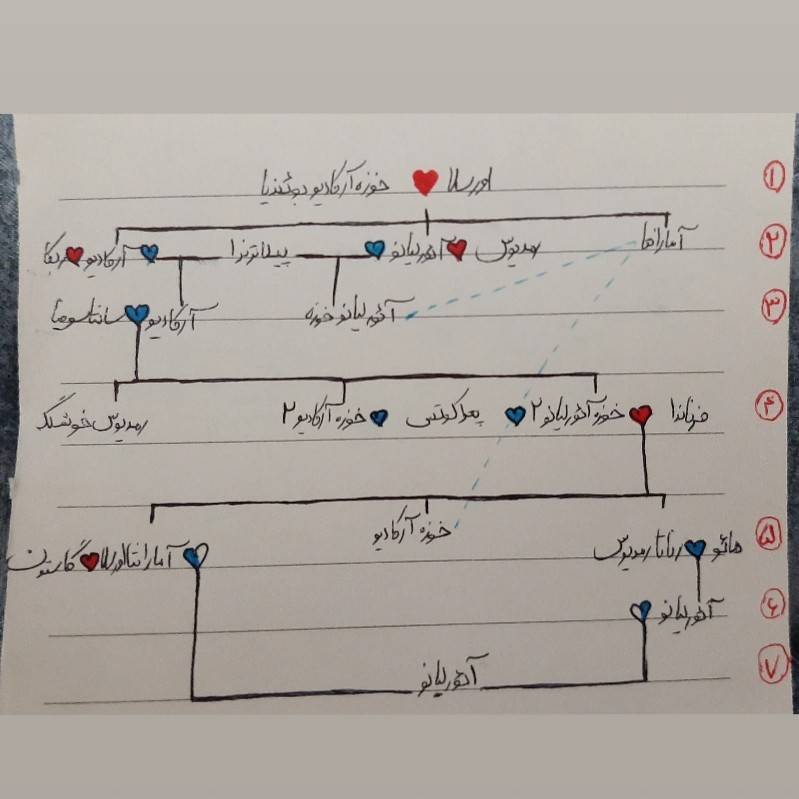 ۱ اورسلا خوزه آرکادیو بوئندیا
۲ آمارانتا رمدیوس آئورلیانو پیلار ترنرا آرکادیو ربکا
۳ آئورلیانو خوزه آرکادیو سانتا سوفیا
۴ فرناندا خوزه آئورلیانو ۲ پترا کوتس خوزه آرکادیو ۲ رمدیوس خوشگله
۵ مائو رناتا رمدیوس خوزه آرکادیو آمارانتا اورسلا گاستون
۶ آئورلیانو
۷ آئورلیانو